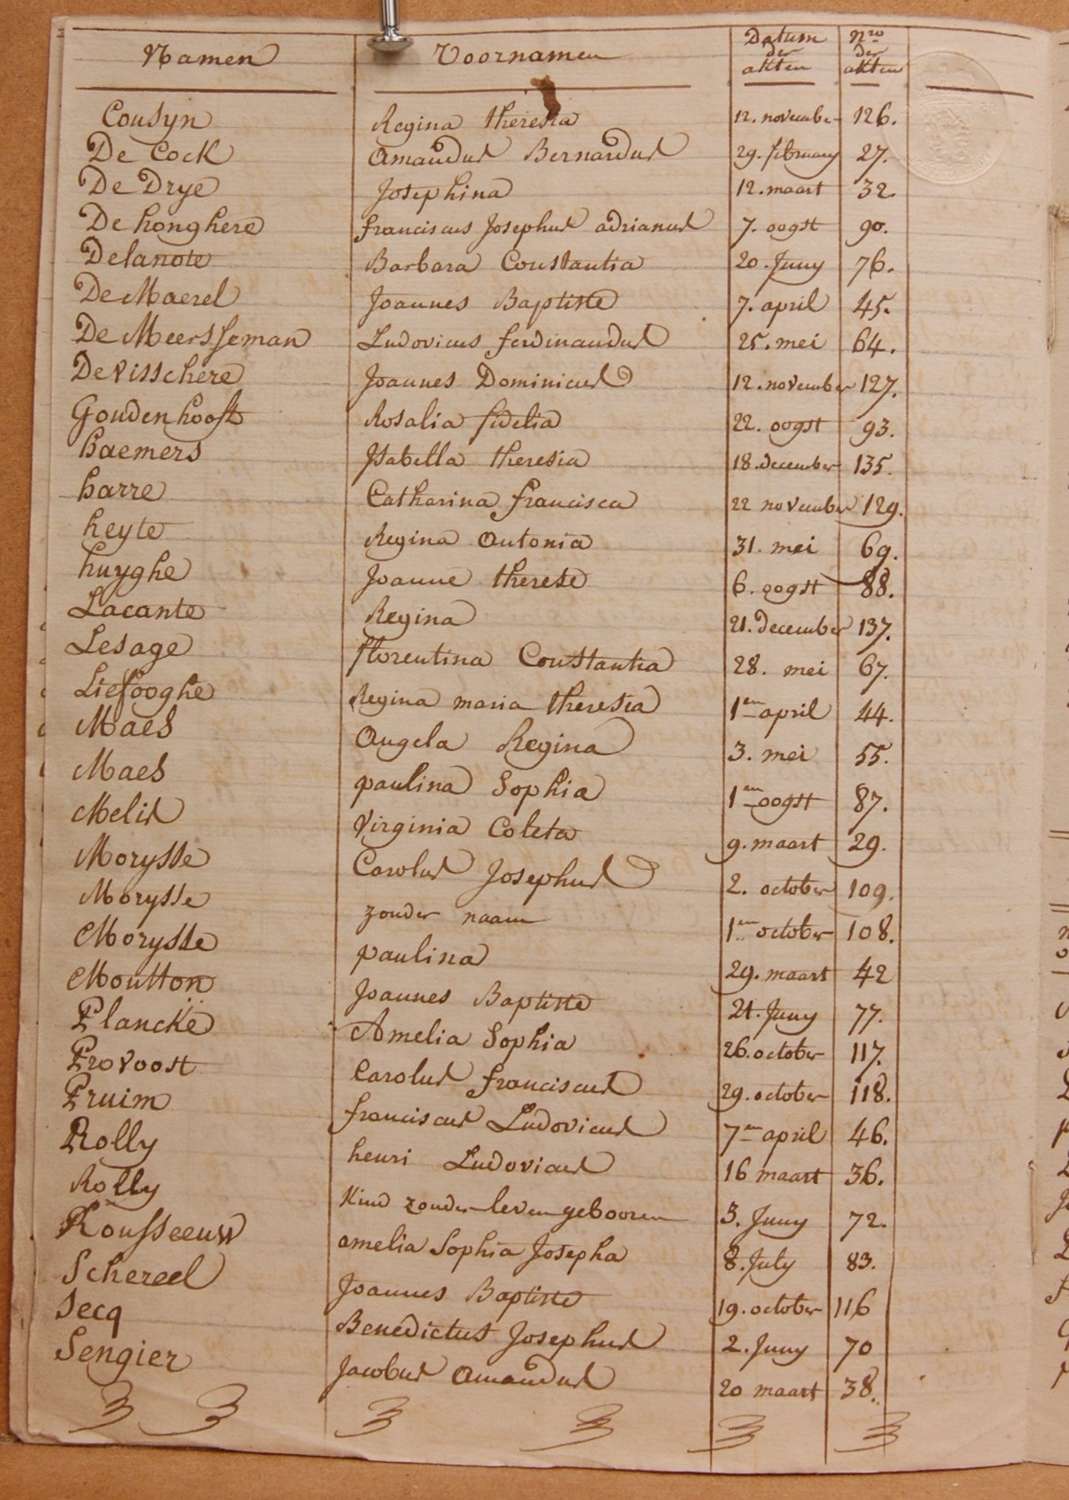 Namen Voornamen Datum der akten nro der akten
Cousyn Regina theresia 12. november 126.
De Cock amandus Bernardus 29. february 27.
De Drye Josephina 12. maart 32.
De honghere franciscus Josephus adrianus 7. oogst 90.
Delanote Barbara Constantia 20. Juny 76.
De Maerel Joannes Baptiste 7. april 45.
De Meersseman Ludovicus ferdinandus 25. mei 64.
De visschere Joannes Dominicus 12. november 127.
Goudenhooft Rosalia fidelia 22. oogst 93.
haemers Isabella theresia 18. december 135.
harre Catharina francisca 22 november 129.
heyte Regina antonia 31. mei 69.
huyghe Joanne therese 6. oogst 88.
Lacante Regina 21. december 137.
Lesage florentina Constantia 28. mei 67.
Liefooghe Regina maria theresia 1en april 44.
Maes angela Regina 3. mei 55.
Maes paulina Sophia 1en oogst 87.
Melis virginia Coleta 9. maart 29.
Morysse Carolus Josephus 2. october 109.
Morysse zonder naam 1en october 108.
Morysse paulina 29. maart 42
Moutton Joannes Baptiste 21. Juny 77.
Plancke Amelia Sophia 26. october 117.
Provoost Carolus franciscus 29. october 118.
Pruim franciscus Ludovicus 7en april 46.
Rolly henri Ludovicus 16 maart 36.
Rolly Kind zonder leven gebooren 3. Juny 72.
Rousseeuw amelia Sophia Josepha 8. July 83.
Schereel Joannes Baptiste 19. october 116
Secq Benedictus Josephus 2. Juny 70
Sengier Jacobus amandus 20 maart 38.